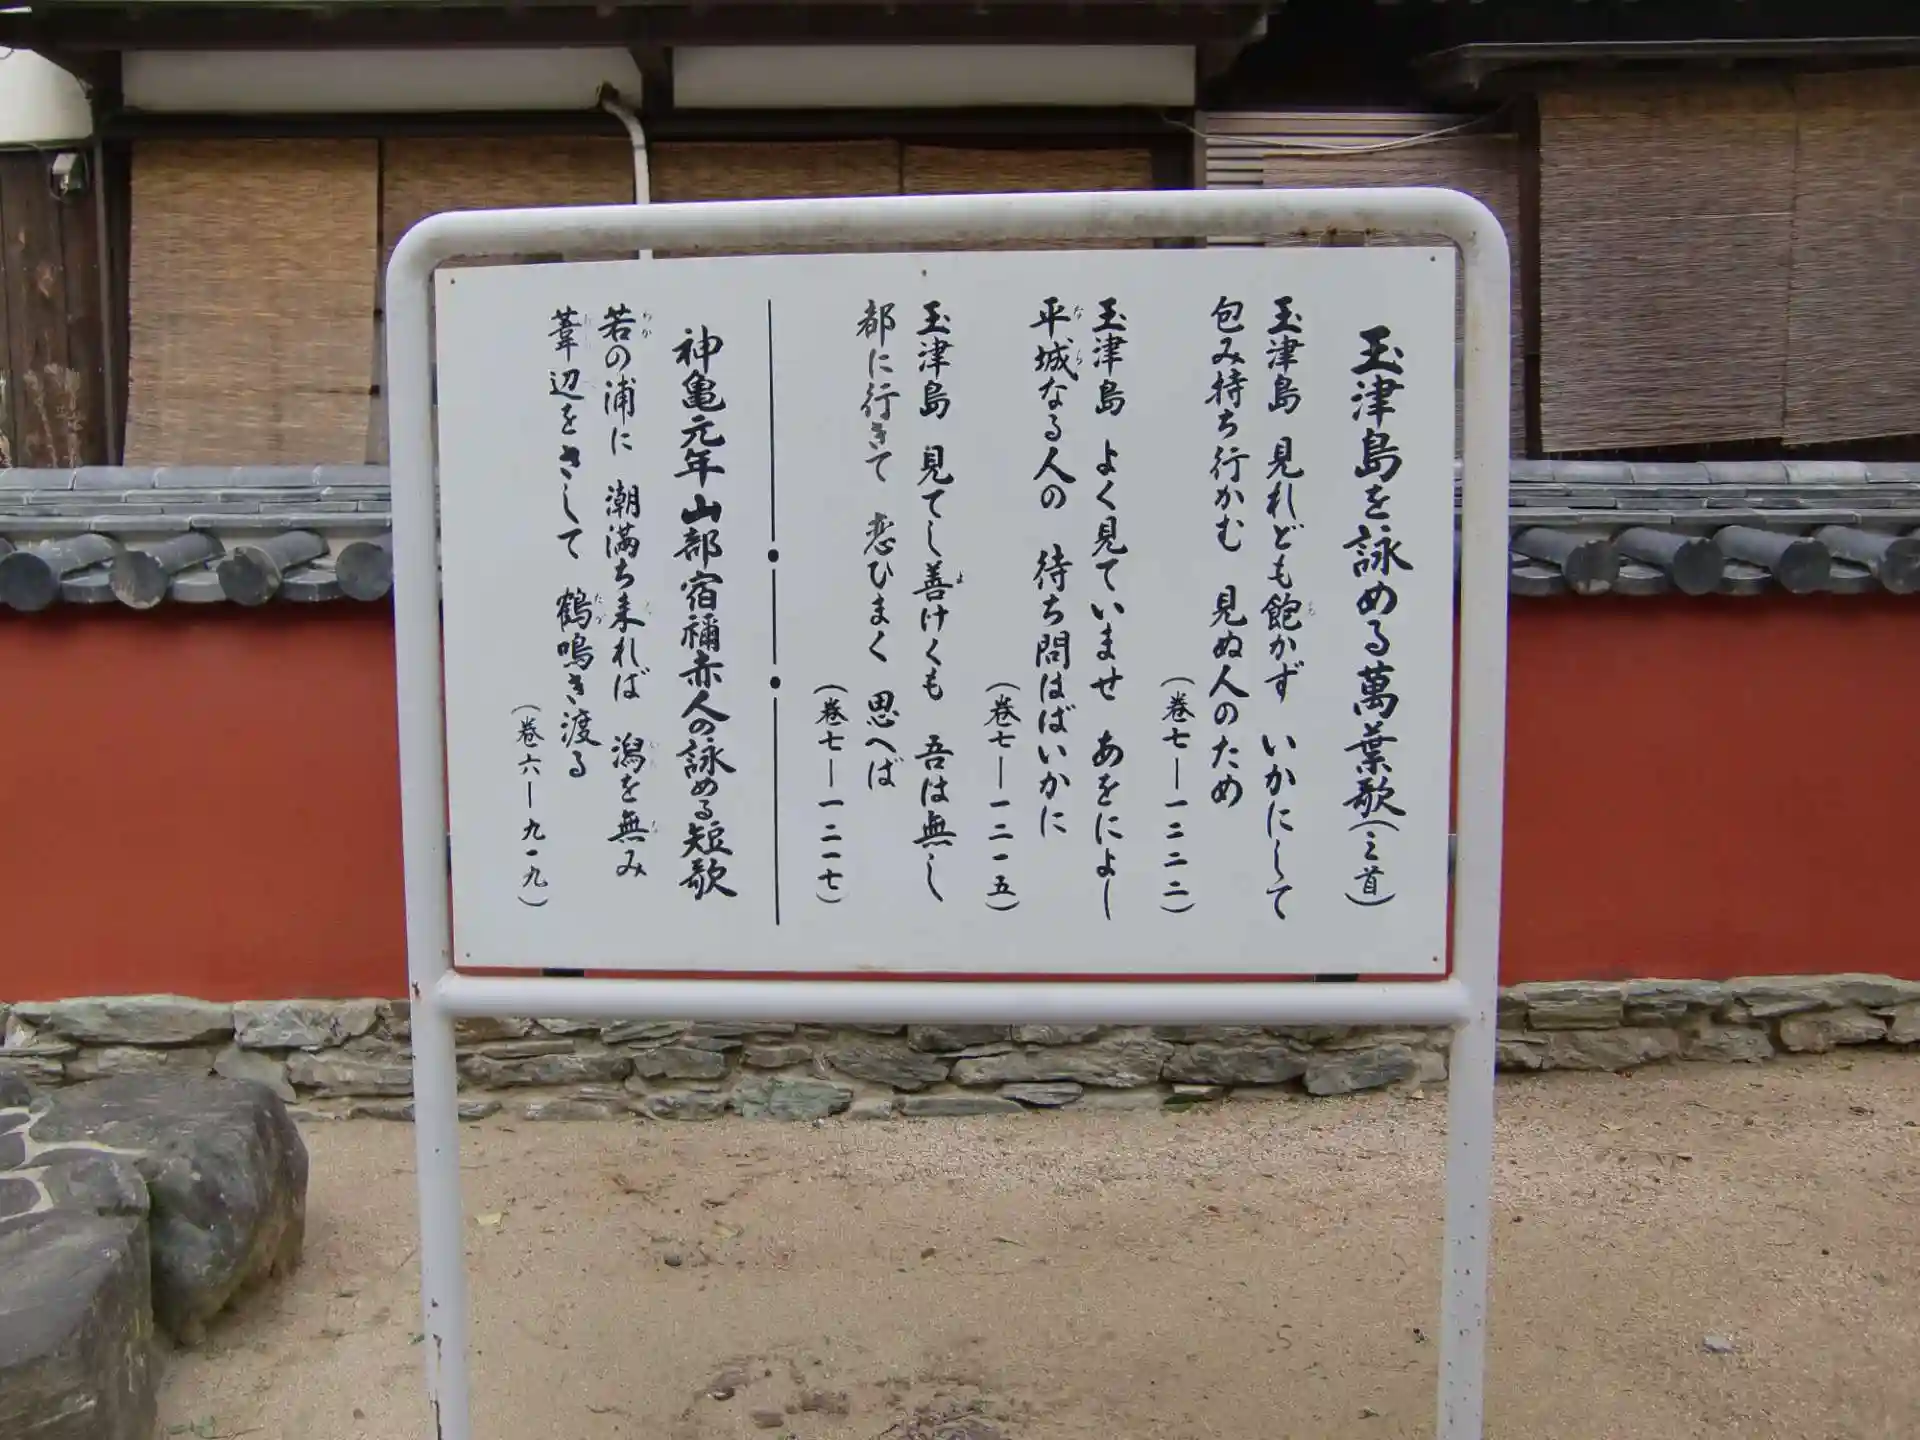 玉津島を詠める萬葉歌(三首)
玉津島 見れども飽かず いかにして
包み持ち行かむ 見ぬ人のため
(巻七―一二二二)
玉津島 よく見ていませ あをによし
平城なる人の 待ち問はばいかに
(巻七―一二一五)
玉津島 見てし善けくも 吾は無し
都に行きて 恋ひまく 思へば
(巻七―一二一七)
神亀元年山部宿禰赤人の詠める短歌
若の浦に 潮満ち来れば 潟を無み
葦辺をさして 鶴鳴き渡る
(巻六―九一九)